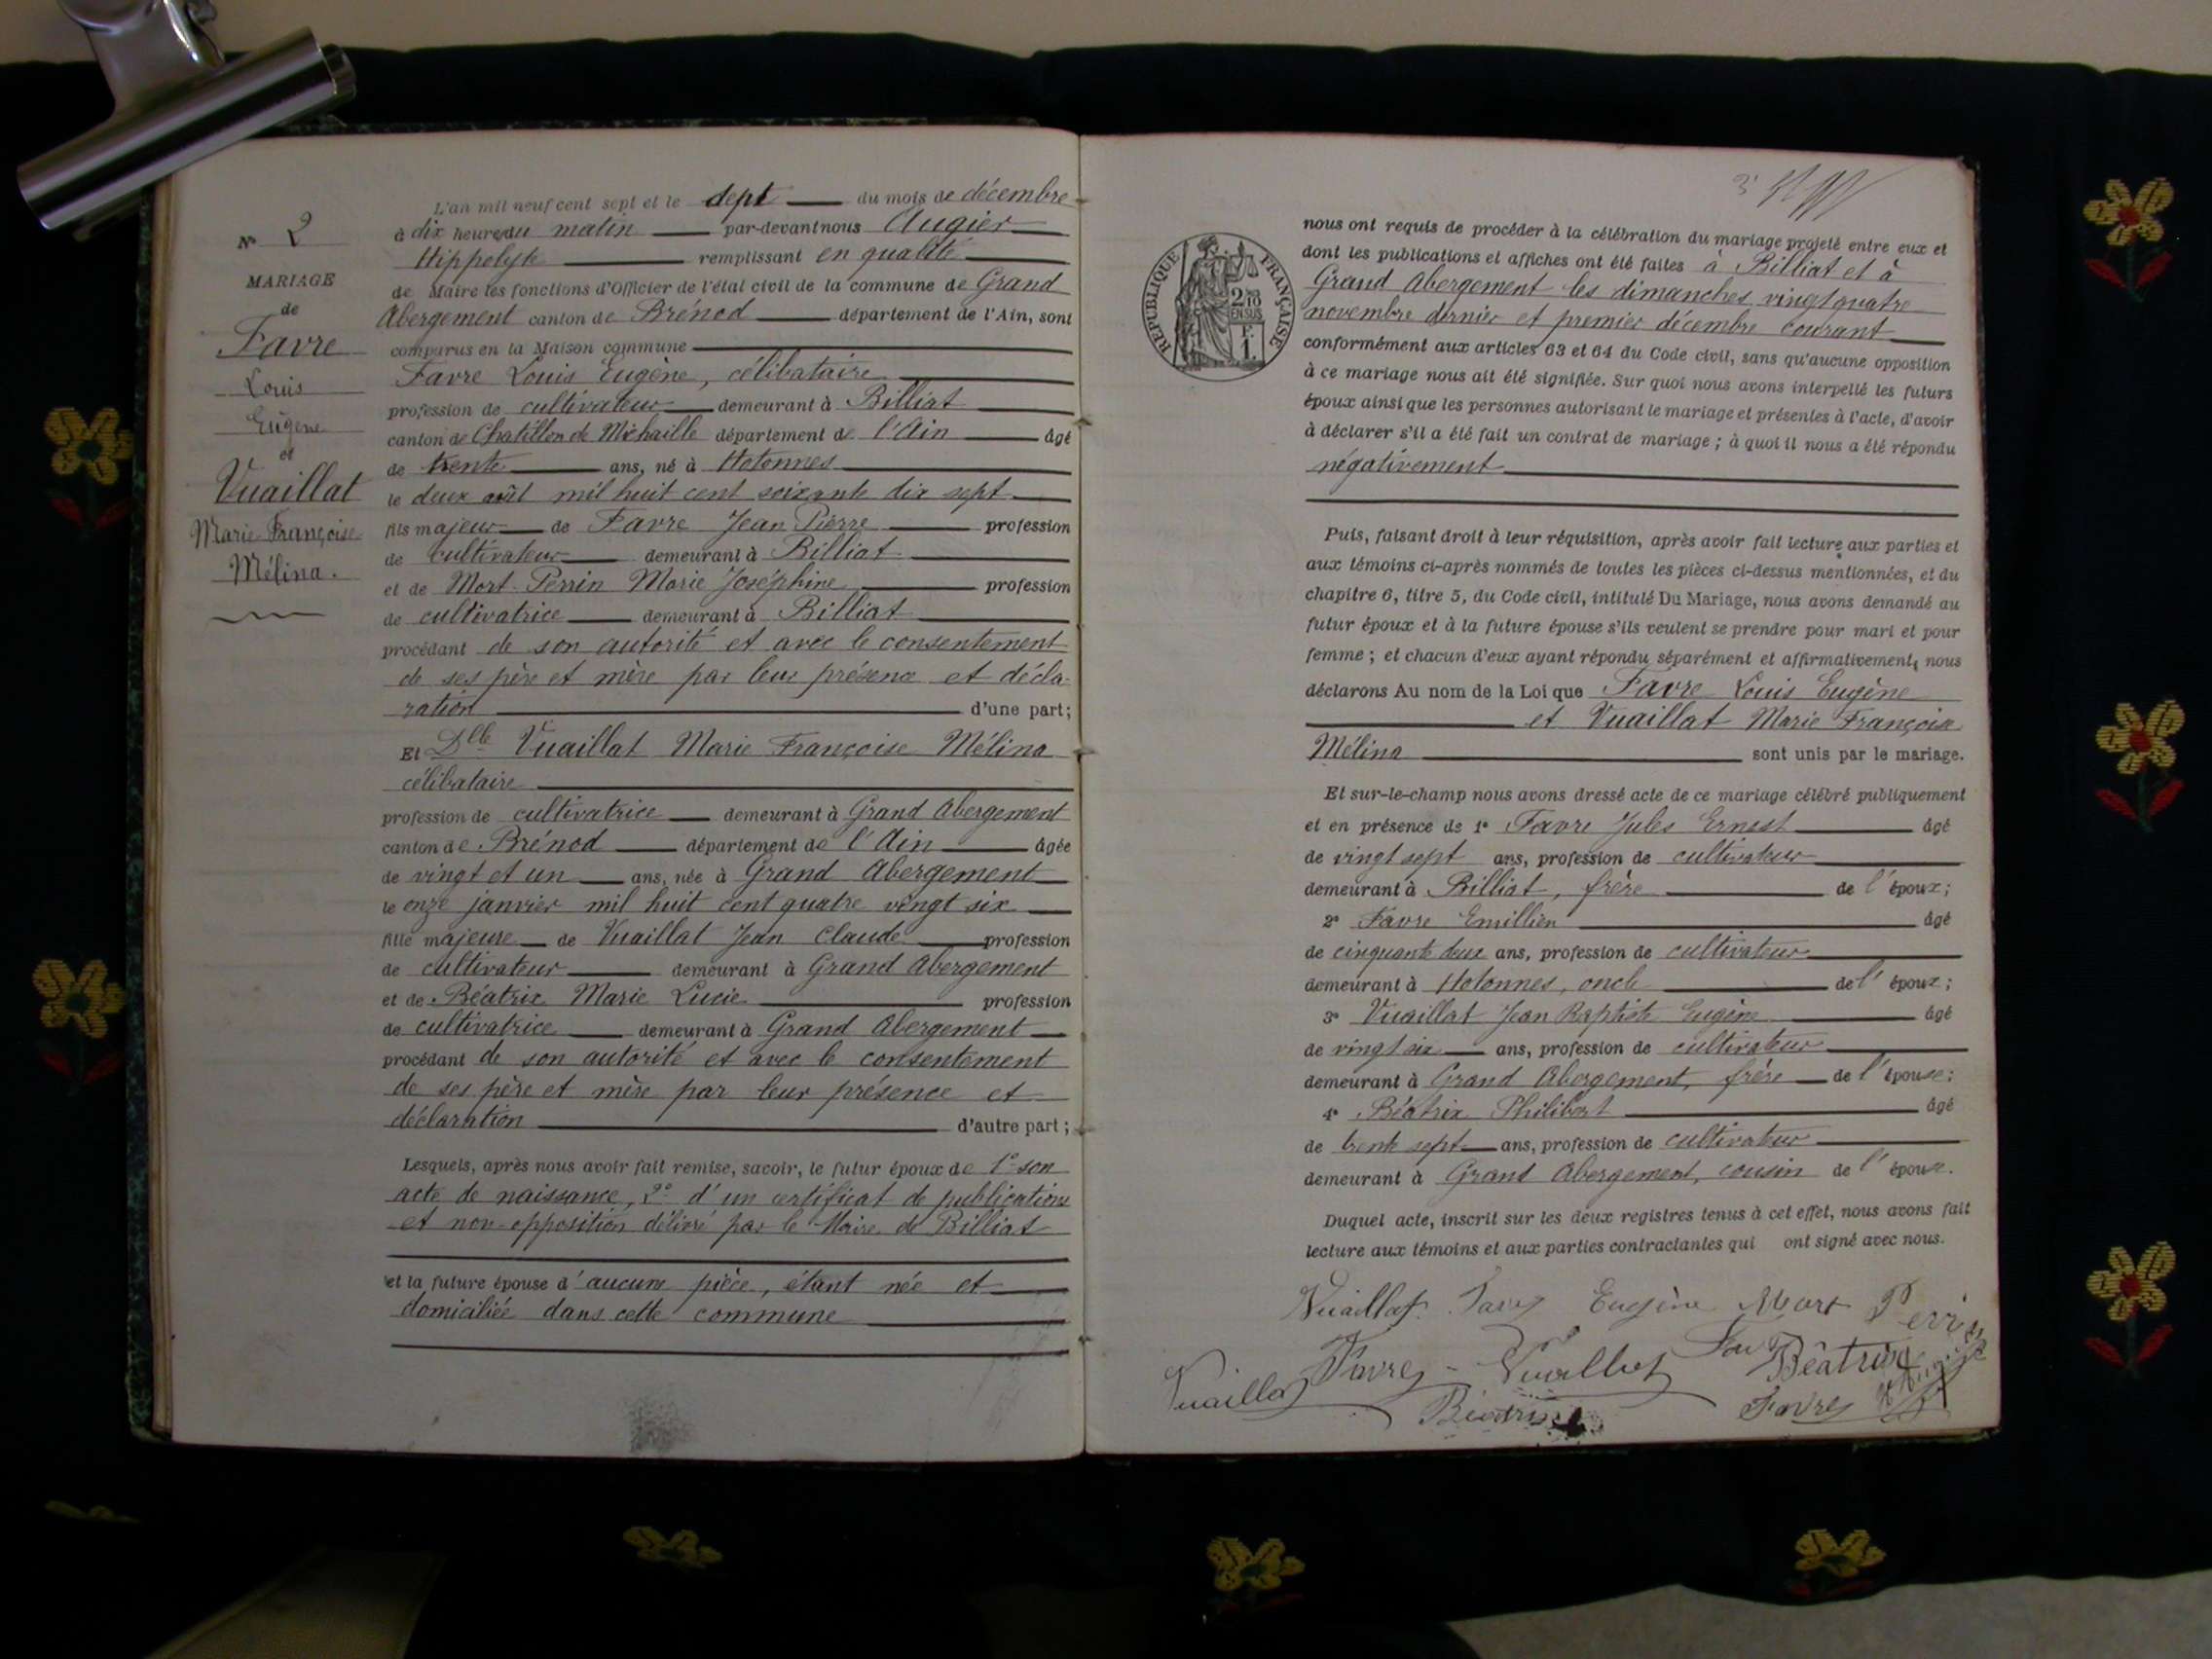 L'an mil neuf cent sept et le sept du mois de décembre
à dix heures du matin par-devant nous Augier
Hippolyte remplissant en qualité
de Maire les fonctions d'Officier de l'état civil de la commune de Grand
Abergement canton de Brénod département de l'Ain, sont
comparus en la Maison commune
Favre Louis Eugène, célibataire
profession de cultivateur demeurant à Billiat
canton de Chatillon de Michaille département de l'Ain âgé
de trente ans, né à Hotonnes
le deux août mil huit cent soixante dix sept
fils majeur de Favre Jean Pierre profession
de cultivateur demeurant à Billiat
et de Mort-Perrin Marie Joséphine profession
de cultivatrice demeurant à Billiat
procédant de son autorité et avec le consentement
de ses père et mère par leur présence et décla-
ration d'une part;
Et Dlle Vuaillat Marie Françoise Mélina
célibataire
profession de cultivatrice demeurant à Grand Abergement
canton de Brénod département de l'Ain âgée
de vingt et un ans, née à Grand Abergement
le onze janvier mil huit cent quatre vingt six
fille majeure de Vuaillat Jean Claude profession
de cultivateur demeurant à Grand Abergement
et de Béatrix Marie Lucie profession
de cultivatrice demeurant à Grand Abergement
procédant de son autorité et avec le consentement
de ses père et mère par leur présence et
déclaration d'autre part;
Lesquels, après nous avoir fait remise, savoir, le futur époux de 1° son
acte de naissance, 2° d'un certificat de publications
et non-opposition délivré par le Maire de Billiat
et la future épouse d'aucune pièce, étant née et
domiciliée dans cette commune
N° 2
MARIAGE
de
Favre
Louis
Eugène
et
Vuaillat
Marie Françoise
Mélina.
RÉPUBLIQUE FRANÇAISE
2/10
EN SUS
F.
1.
nous ont requis de procéder à la célébration du mariage projeté entre eux et
dont les publications et affiches ont été faites à Billiat et à
Grand Abergement les dimanches vingt quatre
novembre dernier et premier décembre courant
conformément aux articles 63 et 64 du Code civil, sans qu'aucune opposition
à ce mariage nous ait été signifiée. Sur quoi nous avons interpellé les futurs
époux ainsi que les personnes autorisant le mariage et présentes à l'acte, d'avoir
à déclarer s'il a été fait un contrat de mariage; à quoi il nous a été répondu
négativement
Puis, faisant droit à leur réquisition, après avoir fait lecture aux parties et
aux témoins ci-après nommés de toutes les pièces ci-dessus mentionnées, et du
chapitre 6, titre 5, du Code civil, intitulé Du Mariage, nous avons demandé au
futur époux et à la future épouse s'ils veulent se prendre pour mari et pour
femme; et chacun d'eux ayant répondu séparément et affirmativement, nous
déclarons Au nom de la Loi que Favre Louis Eugène
et Vuaillat Marie Françoise
Mélina sont unis par le mariage.
Et sur-le-champ nous avons dressé acte de ce mariage célébré publiquement
et en présence de 1° Favre Jules Ernest âgé
de vingt sept ans, profession de cultivateur
demeurant à Billiat, frère de l'époux;
2° Favre Emillien âgé
de cinquante deux ans, profession de cultivateur
demeurant à Hotonnes, oncle de l'époux;
3° Vuaillat Jean Baptiste Eugène âgé
de vingt six ans, profession de cultivateur
demeurant à Grand Abergement, frère de l'épouse;
4° Béatrix Philibert âgé
de trente sept ans, profession de cultivateur
demeurant à Grand Abergement, cousin de l'épouse.
Duquel acte, inscrit sur les deux registres tenus à cet effet, nous avons fait
lecture aux témoins et aux parties contractantes qui ont signé avec nous.
Vuaillat Favre Eugène Mort Perrin
Favre Vuaillat Béatrix
Vuaillat Béatrix Favre